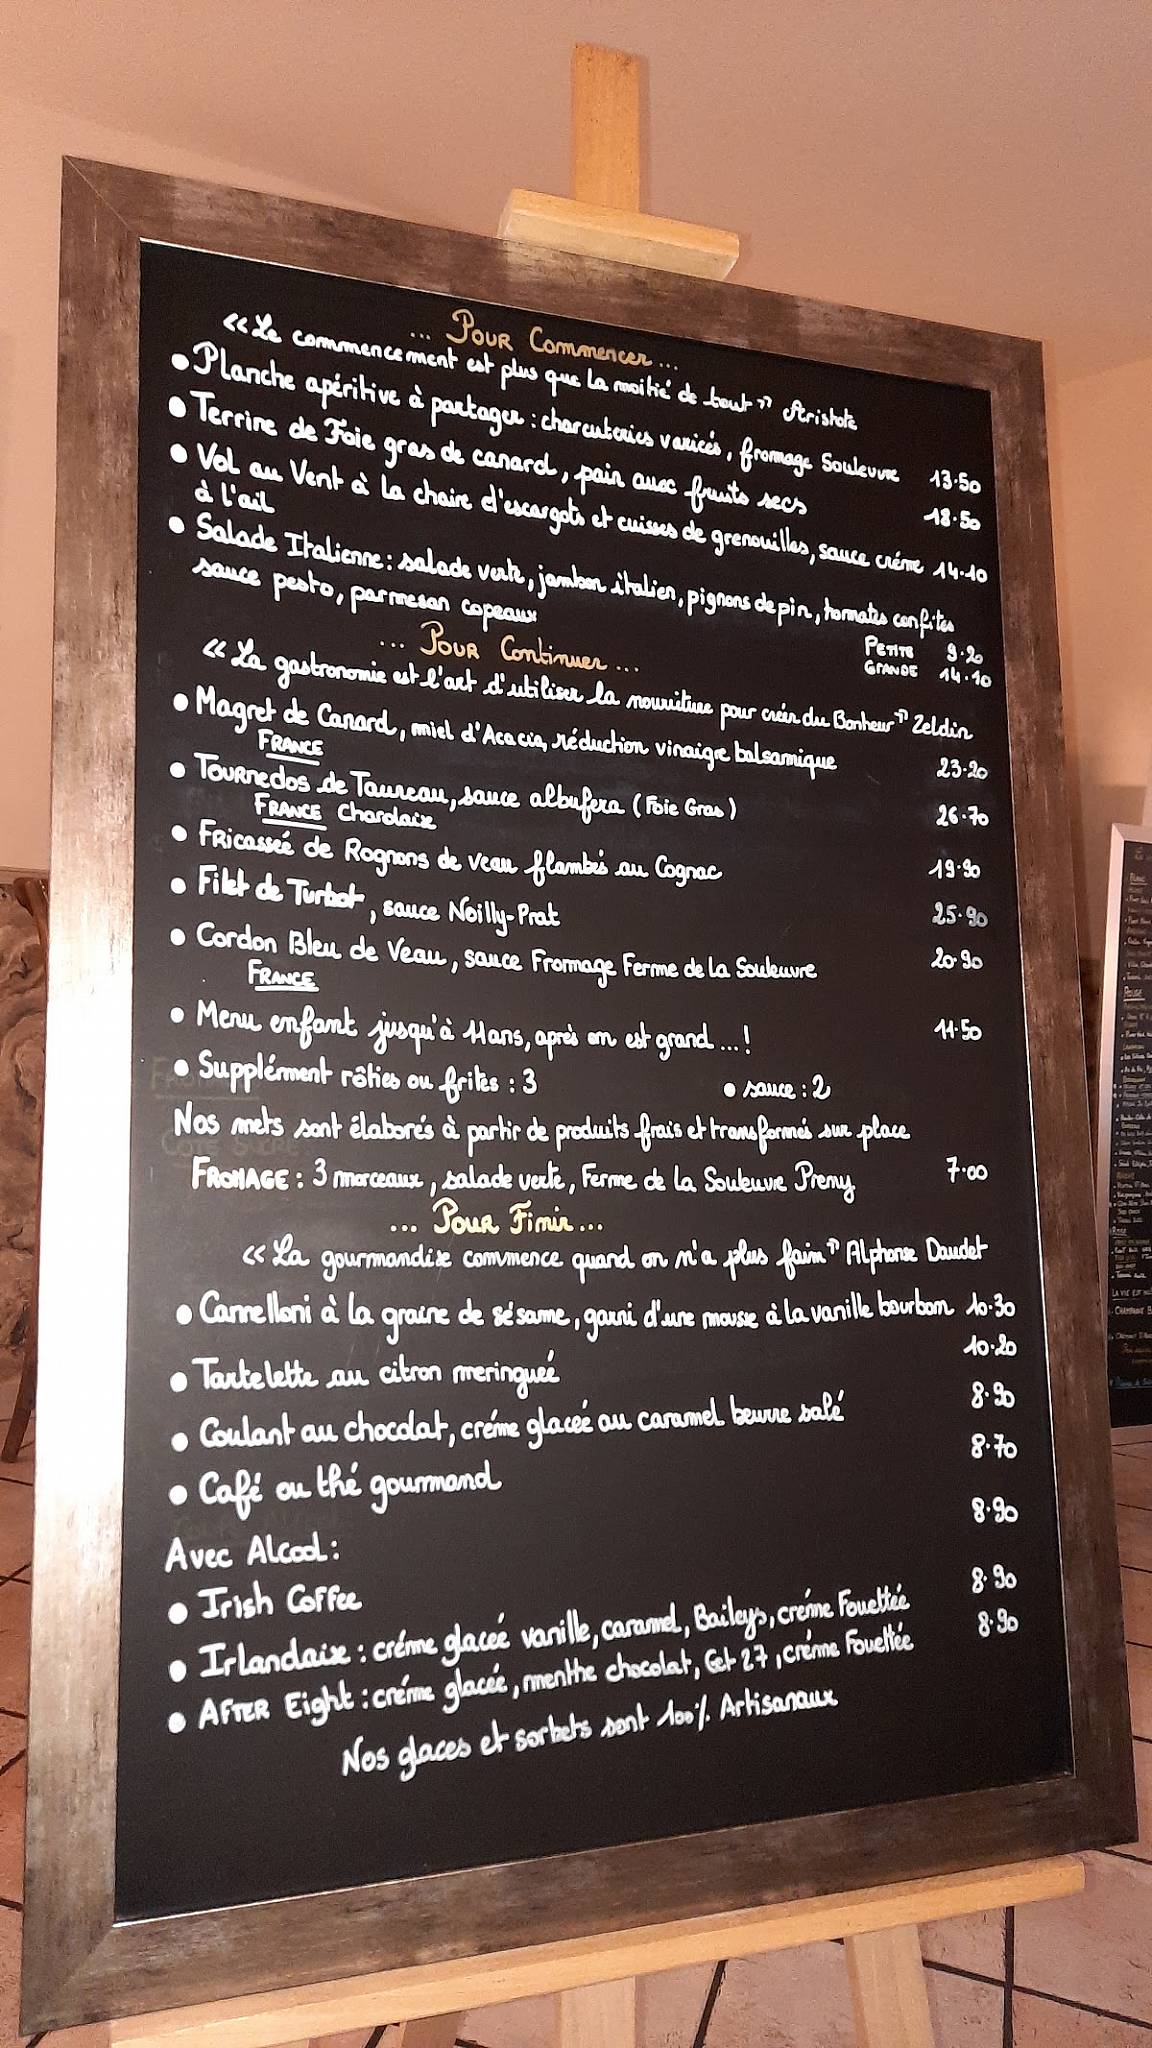 ... Pour Commencer ...
«Le commencement est plus que la moitié de tout" Aristote
• Planche apéritive à partager : charcuteries variées, fromage Souleuvre 13.50
• Terrine de Foie gras de canard, pain aux fruits secs 18.50
• Vol au Vent à la chaire d'escargots et cuisses de grenouilles, sauce créme 14.10
à l'ail
• Salade Italienne : salade verte, jambon italien, pignons de pin, tomates confites
sauce pesto, parmesan copeaux
PETITE 9.20
GRANDE 14.10
... Pour Continuer ...
« La gastronomie est l'art d'utiliser la nourriture pour créer du Bonheur" Zeldin
• Magret de Canard, miel d'Acacia, réduction vinaigre balsamique 23.20
FRANCE
• Tournedos de Taureau, sauce albufera (Foie Gras) 26.70
FRANCE Charolaix
• Fricasseé de Rognons de veau flambés au Cognac 19.90
• Filet de Turbot, sauce Noilly-Prat 25.90
• Cordon Bleu de Veau, sauce Fromage Ferme de la Souleuvre 20.90
FRANCE
• Menu enfant jusqu'à 11ans, après on est grand ...! 11.50
• Supplément rôties ou frites : 3 • sauce : 2
Nos mets sont élaborés à partir de produits frais et transformés sur place
FROMAGE : 3 morceaux, salade verte, Ferme de la Souleuvre Preny 7.00
... Pour Finir ...
« La gourmandise commence quand on n'a plus faim" Alphonse Daudet
• Cannelloni à la graine de sésame, garni d'une mousse à la vanille bourbon 10.30
• Tartelette au citron meringueé 10.20
• Coulant au chocolat, créme glaceé au caramel beurre salé 8.90
• Café ou thé gourmand 8.70
Avec Alcool :
• Irish Coffee 8.90
• Irlandaix : créme glaceé vanille, caramel, Baileys, créme Fouettée 8.90
• AFTER Eight : créme glacée, menthe chocolat, Get 27, créme Fouettée 8.90
Nos glaces et sorbets sont 100% Artisanaux